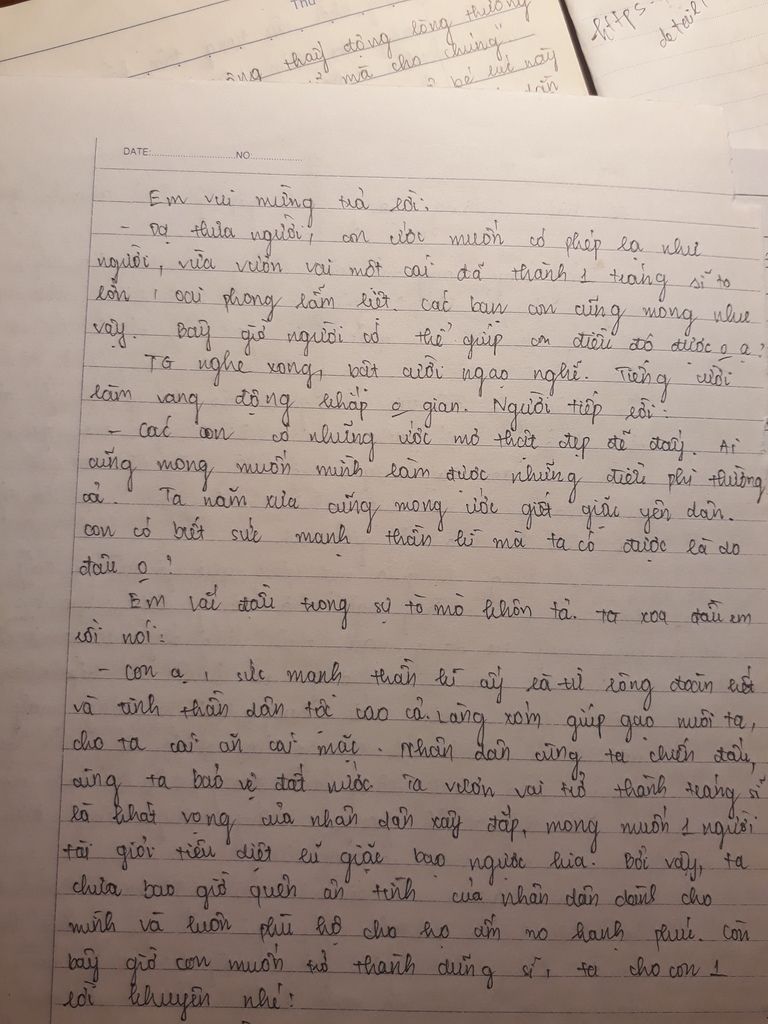 Thứ
thấy động lòng thương
mà cho chúng"
bé lúc này
https
detail
DATE: NO:
Em vui mừng trả lời:
- Dạ thưa người, con ước muốn có phép lạ như
người, vừa vươn vai một cái đã thành 1 tráng sĩ to
lớn, oai phong lẫm liệt. Các bạn con cũng mong như
vậy. Bây giờ người có thể giúp con điều đó được o ạ?
TG nghe xong, bật cười ngạo nghễ. Tiếng cười
làm vang động khắp o gian. Người tiếp lời:
- Các con có những ước mơ thật đẹp đẽ đấy. Ai
cũng mong muốn mình làm được những điều phi thường
cả. Ta năm xưa cũng mong ước giết giặc yên dân.
Con có biết sức mạnh thần kì mà ta có được là do
đâu o?
Em lắc đầu trong sự tò mò khôn tả. TG xoa đầu em
rồi nói:
- Con ạ, sức mạnh thần kì ấy là từ lòng đoàn kết
và tình thần dân tộc cao cả. Làng xóm giúp gạo nuôi ta,
cho ta cái ăn cái mặc. Nhân dân cùng ta chiến đấu,
cùng ta bảo vệ đất nước. Ta vươn vai trở thành tráng sĩ
là khát vọng của nhân dân xây đắp, mong muốn 1 người
tài giỏi tiêu diệt lũ giặc bạo ngược kia. Bởi vậy, ta
chưa bao giờ quên ân tình của nhân dân dành cho
mình và luôn phù hộ cho họ ấm no hạnh phúc. Còn
bây giờ con muốn trở thành dũng sĩ, ta cho con 1
lời khuyên nhé: